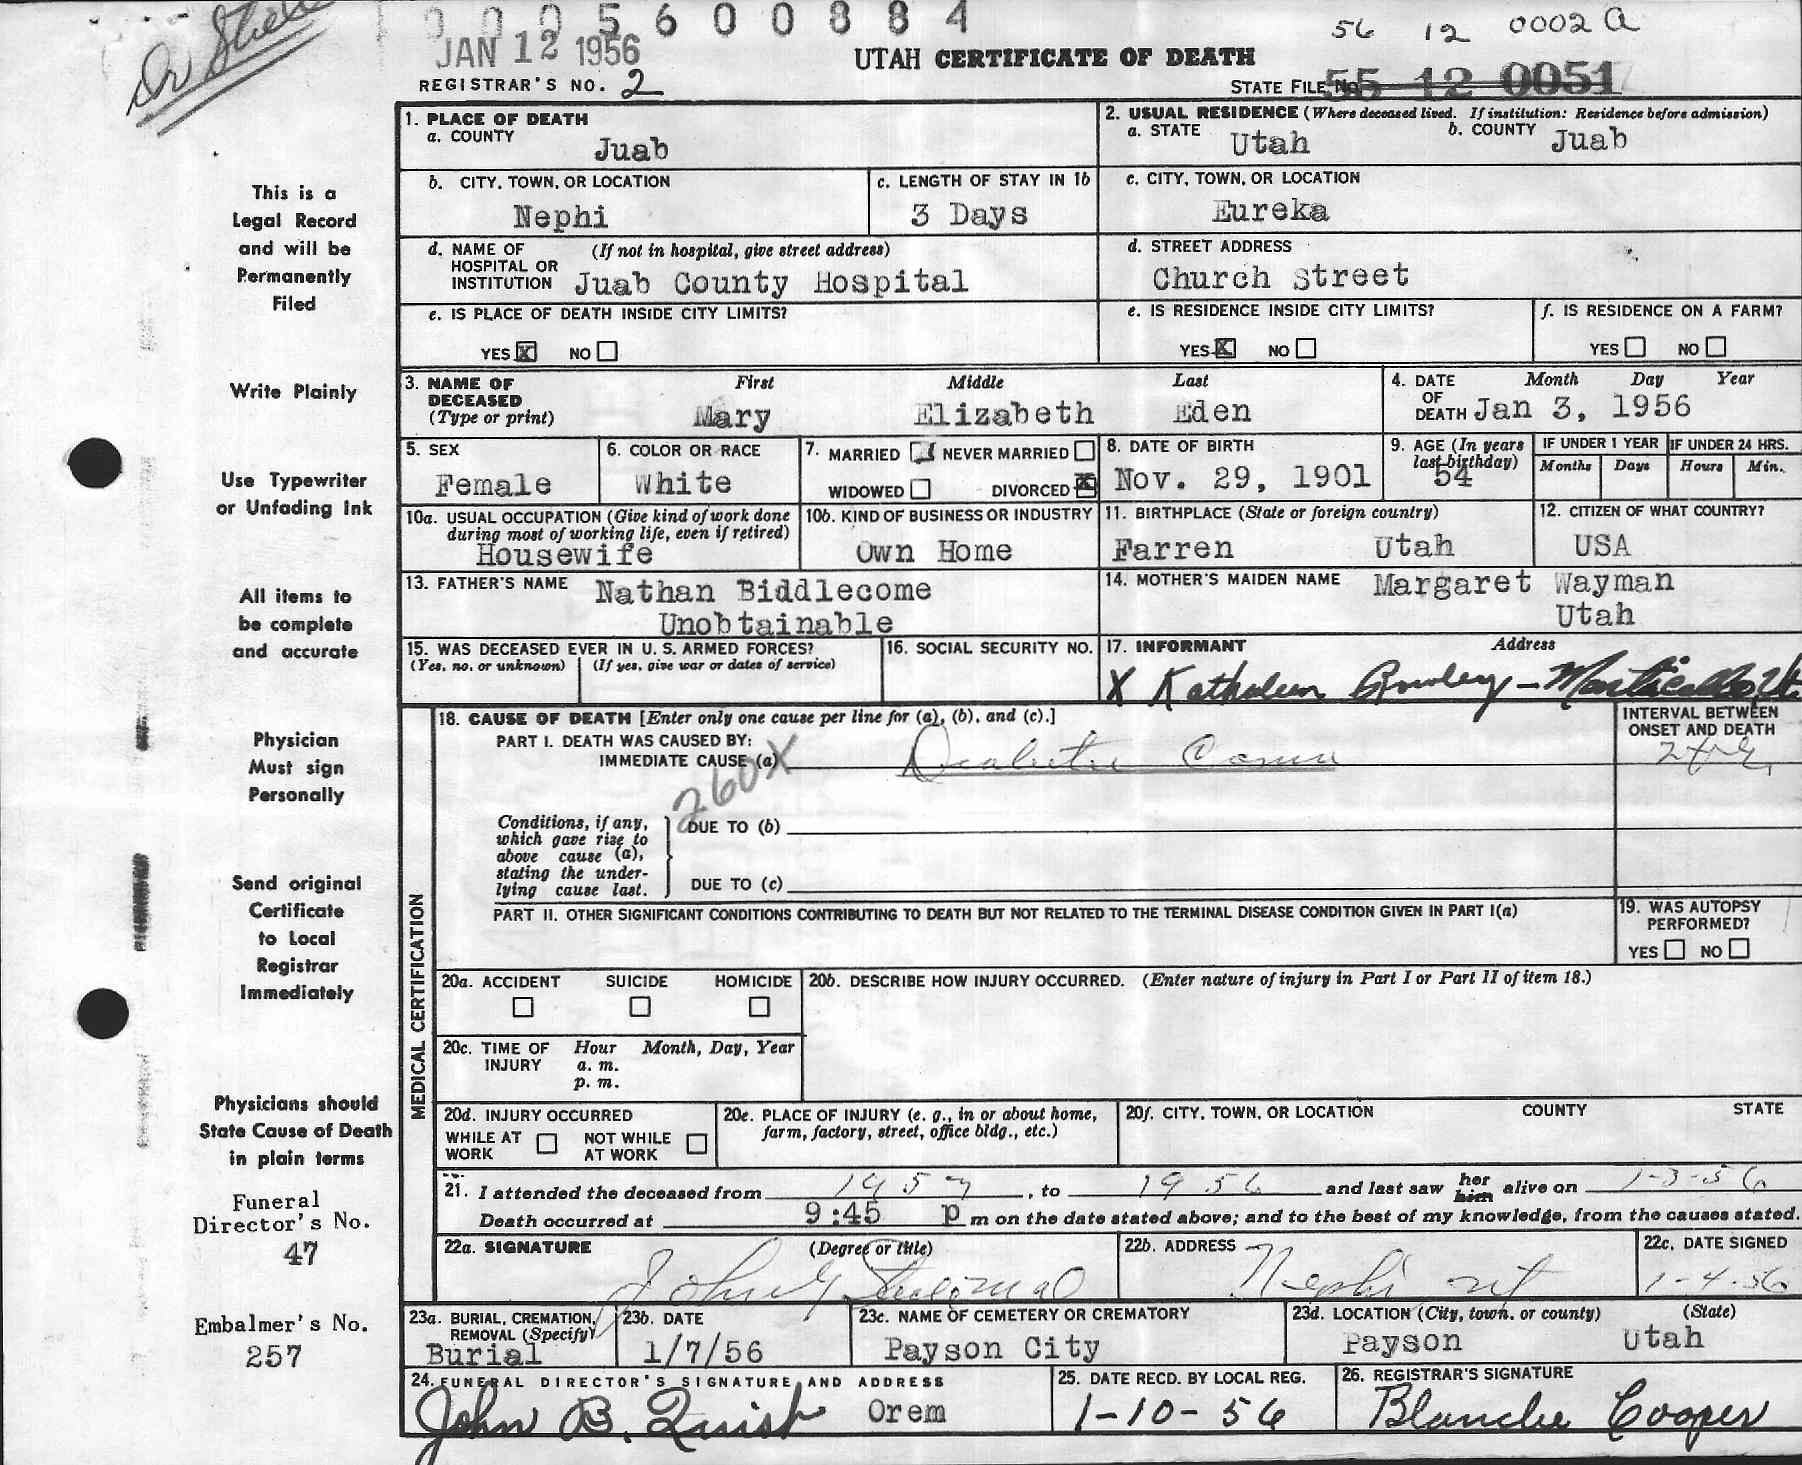 Dr
0005600884
JAN 12 1956
56 12 0002 a
UTAH CERTIFICATE OF DEATH
REGISTRAR'S NO. 2
STATE FILE No. 55 12 0051
This is a
Legal Record
and will be
Permanently
Filed
Write Plainly
Use Typewriter
or Unfading Ink
All items to
be complete
and accurate
Physician
Must sign
Personally
Send original
Certificate
to Local
Registrar
Immediately
Physicians should
State Cause of Death
in plain terms
Funeral
Director's No.
47
Embalmer's No.
257
1. PLACE OF DEATH
a. COUNTY
Juab
2. USUAL RESIDENCE (Where deceased lived. If institution: Residence before admission)
a. STATE Utah b. COUNTY Juab
b. CITY, TOWN, OR LOCATION
Nephi
c. LENGTH OF STAY IN 1b
3 Days
c. CITY, TOWN, OR LOCATION
Eureka
d. NAME OF (If not in hospital, give street address)
HOSPITAL OR
INSTITUTION Juab County Hospital
d. STREET ADDRESS
Church Street
e. IS PLACE OF DEATH INSIDE CITY LIMITS?
YES X NO
e. IS RESIDENCE INSIDE CITY LIMITS?
YES X NO
f. IS RESIDENCE ON A FARM?
YES NO
3. NAME OF DECEASED (Type or print)
First Middle Last
Mary Elizabeth Eden
4. DATE OF DEATH
Month Day Year
Jan 3, 1956
5. SEX
Female
6. COLOR OR RACE
White
7. MARRIED NEVER MARRIED
WIDOWED DIVORCED X
8. DATE OF BIRTH
Nov. 29, 1901
9. AGE (In years last birthday)
54
IF UNDER 1 YEAR
Months Days
IF UNDER 24 HRS.
Hours Min.
10a. USUAL OCCUPATION (Give kind of work done
during most of working life, even if retired)
Housewife
10b. KIND OF BUSINESS OR INDUSTRY
Own Home
11. BIRTHPLACE (State or foreign country)
Farren Utah
12. CITIZEN OF WHAT COUNTRY?
USA
13. FATHER'S NAME Nathan Biddlecome
Unobtainable
14. MOTHER'S MAIDEN NAME Margaret Wayman
Utah
15. WAS DECEASED EVER IN U. S. ARMED FORCES?
(Yes, no, or unknown) (If yes, give war or dates of service)
16. SOCIAL SECURITY NO.
17. INFORMANT Address
X Kathaleen - Monticello, Ut.
MEDICAL CERTIFICATION
18. CAUSE OF DEATH [Enter only one cause per line for (a), (b), and (c).]
PART I. DEATH WAS CAUSED BY:
IMMEDIATE CAUSE (a) Diabetic Coma
INTERVAL BETWEEN
ONSET AND DEATH
260X
Conditions, if any,
which gave rise to
above cause (a),
stating the under-
lying cause last.
DUE TO (b)
DUE TO (c)
PART II. OTHER SIGNIFICANT CONDITIONS CONTRIBUTING TO DEATH BUT NOT RELATED TO THE TERMINAL DISEASE CONDITION GIVEN IN PART I(a)
19. WAS AUTOPSY
PERFORMED?
YES NO
20a. ACCIDENT SUICIDE HOMICIDE
20b. DESCRIBE HOW INJURY OCCURRED. (Enter nature of injury in Part I or Part II of item 18.)
20c. TIME OF INJURY
Hour Month, Day, Year
a. m.
p. m.
20d. INJURY OCCURRED
WHILE AT WORK NOT WHILE AT WORK
20e. PLACE OF INJURY (e. g., in or about home,
farm, factory, street, office bldg., etc.)
20f. CITY, TOWN, OR LOCATION COUNTY STATE
21. I attended the deceased from , to 1956 and last saw her him alive on 1-3-56
Death occurred at 9:45 p m on the date stated above; and to the best of my knowledge, from the causes stated.
22a. SIGNATURE (Degree or title)
John
22b. ADDRESS
Nephi Ut
22c. DATE SIGNED
1-4-56
23a. BURIAL, CREMATION,
REMOVAL (Specify)
Burial
23b. DATE
1/7/56
23c. NAME OF CEMETERY OR CREMATORY
Payson City
23d. LOCATION (City, town, or county) (State)
Payson Utah
24. FUNERAL DIRECTOR'S SIGNATURE AND ADDRESS
John B. Quist Orem
25. DATE RECD. BY LOCAL REG.
1-10-56
26. REGISTRAR'S SIGNATURE
Blanche Cooper